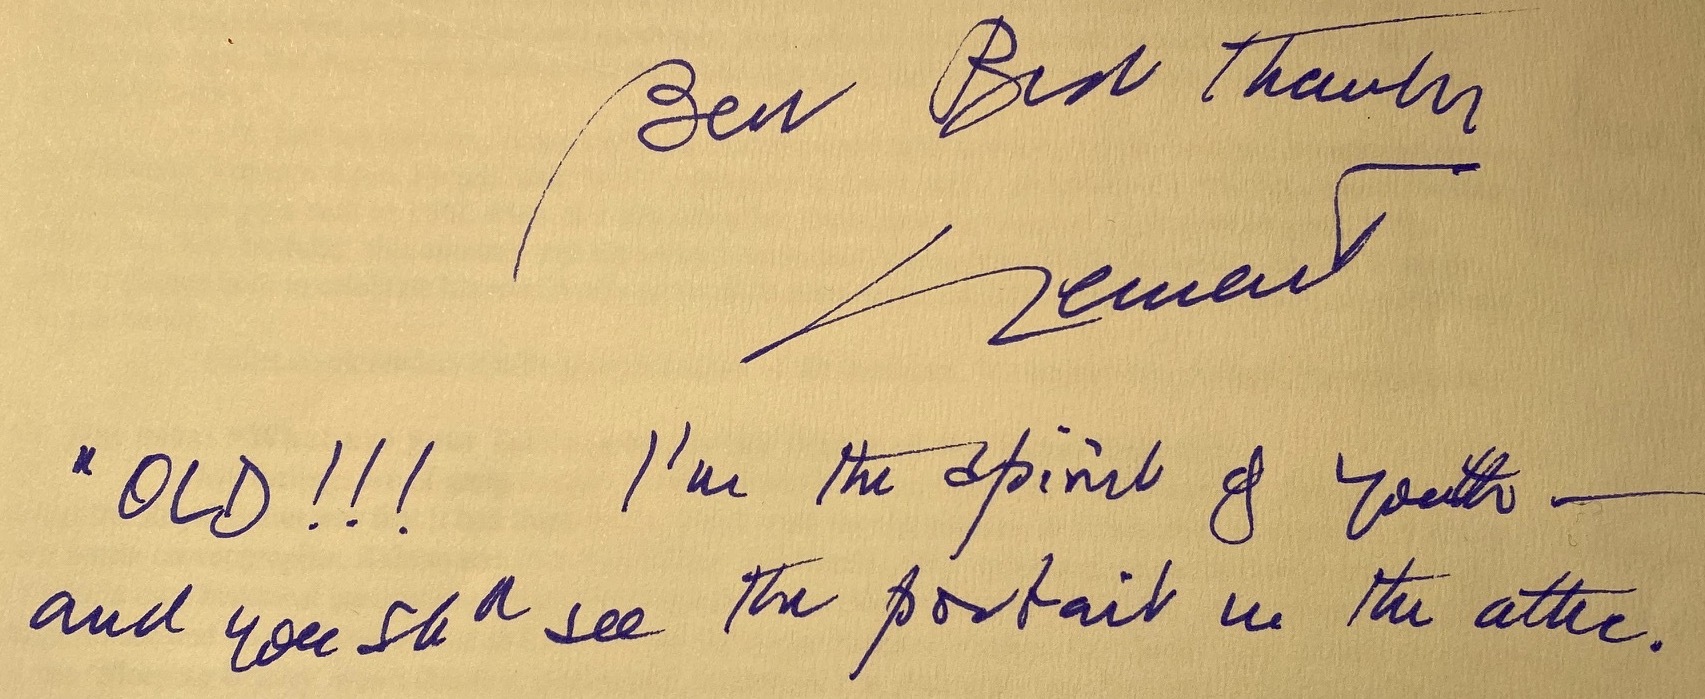 Best Thanks
Clement
"OLD!!! I'm the spirit of youth —
and you shd see the portrait in the attic.